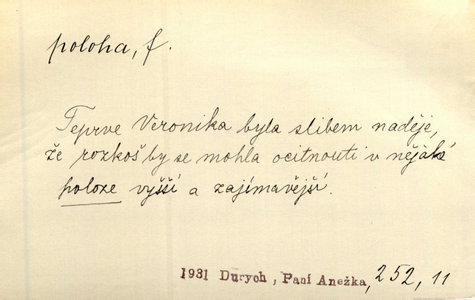 poloha, f.
Teprve Veronika byla slibem naděje,
že rozkoš by se mohla ocitnouti v nějaké
poloze vyšší a zajímavější.
1931 Durych, Paní Anežka, 252, 11